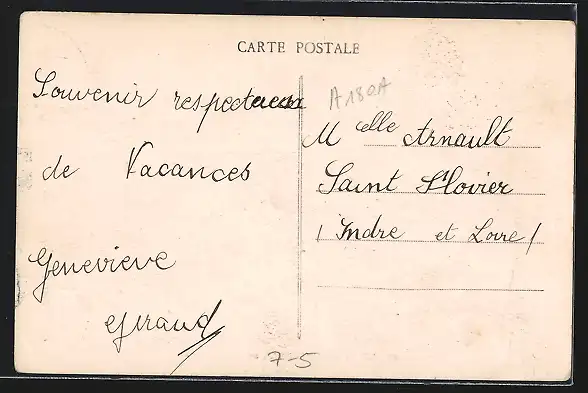 CARTE POSTALE
Souvenir respectueux
de Vacances
Geneviève
Giraud
A180A
Melle Arnault
Saint Flovier
(Indre et Loire)
7-5